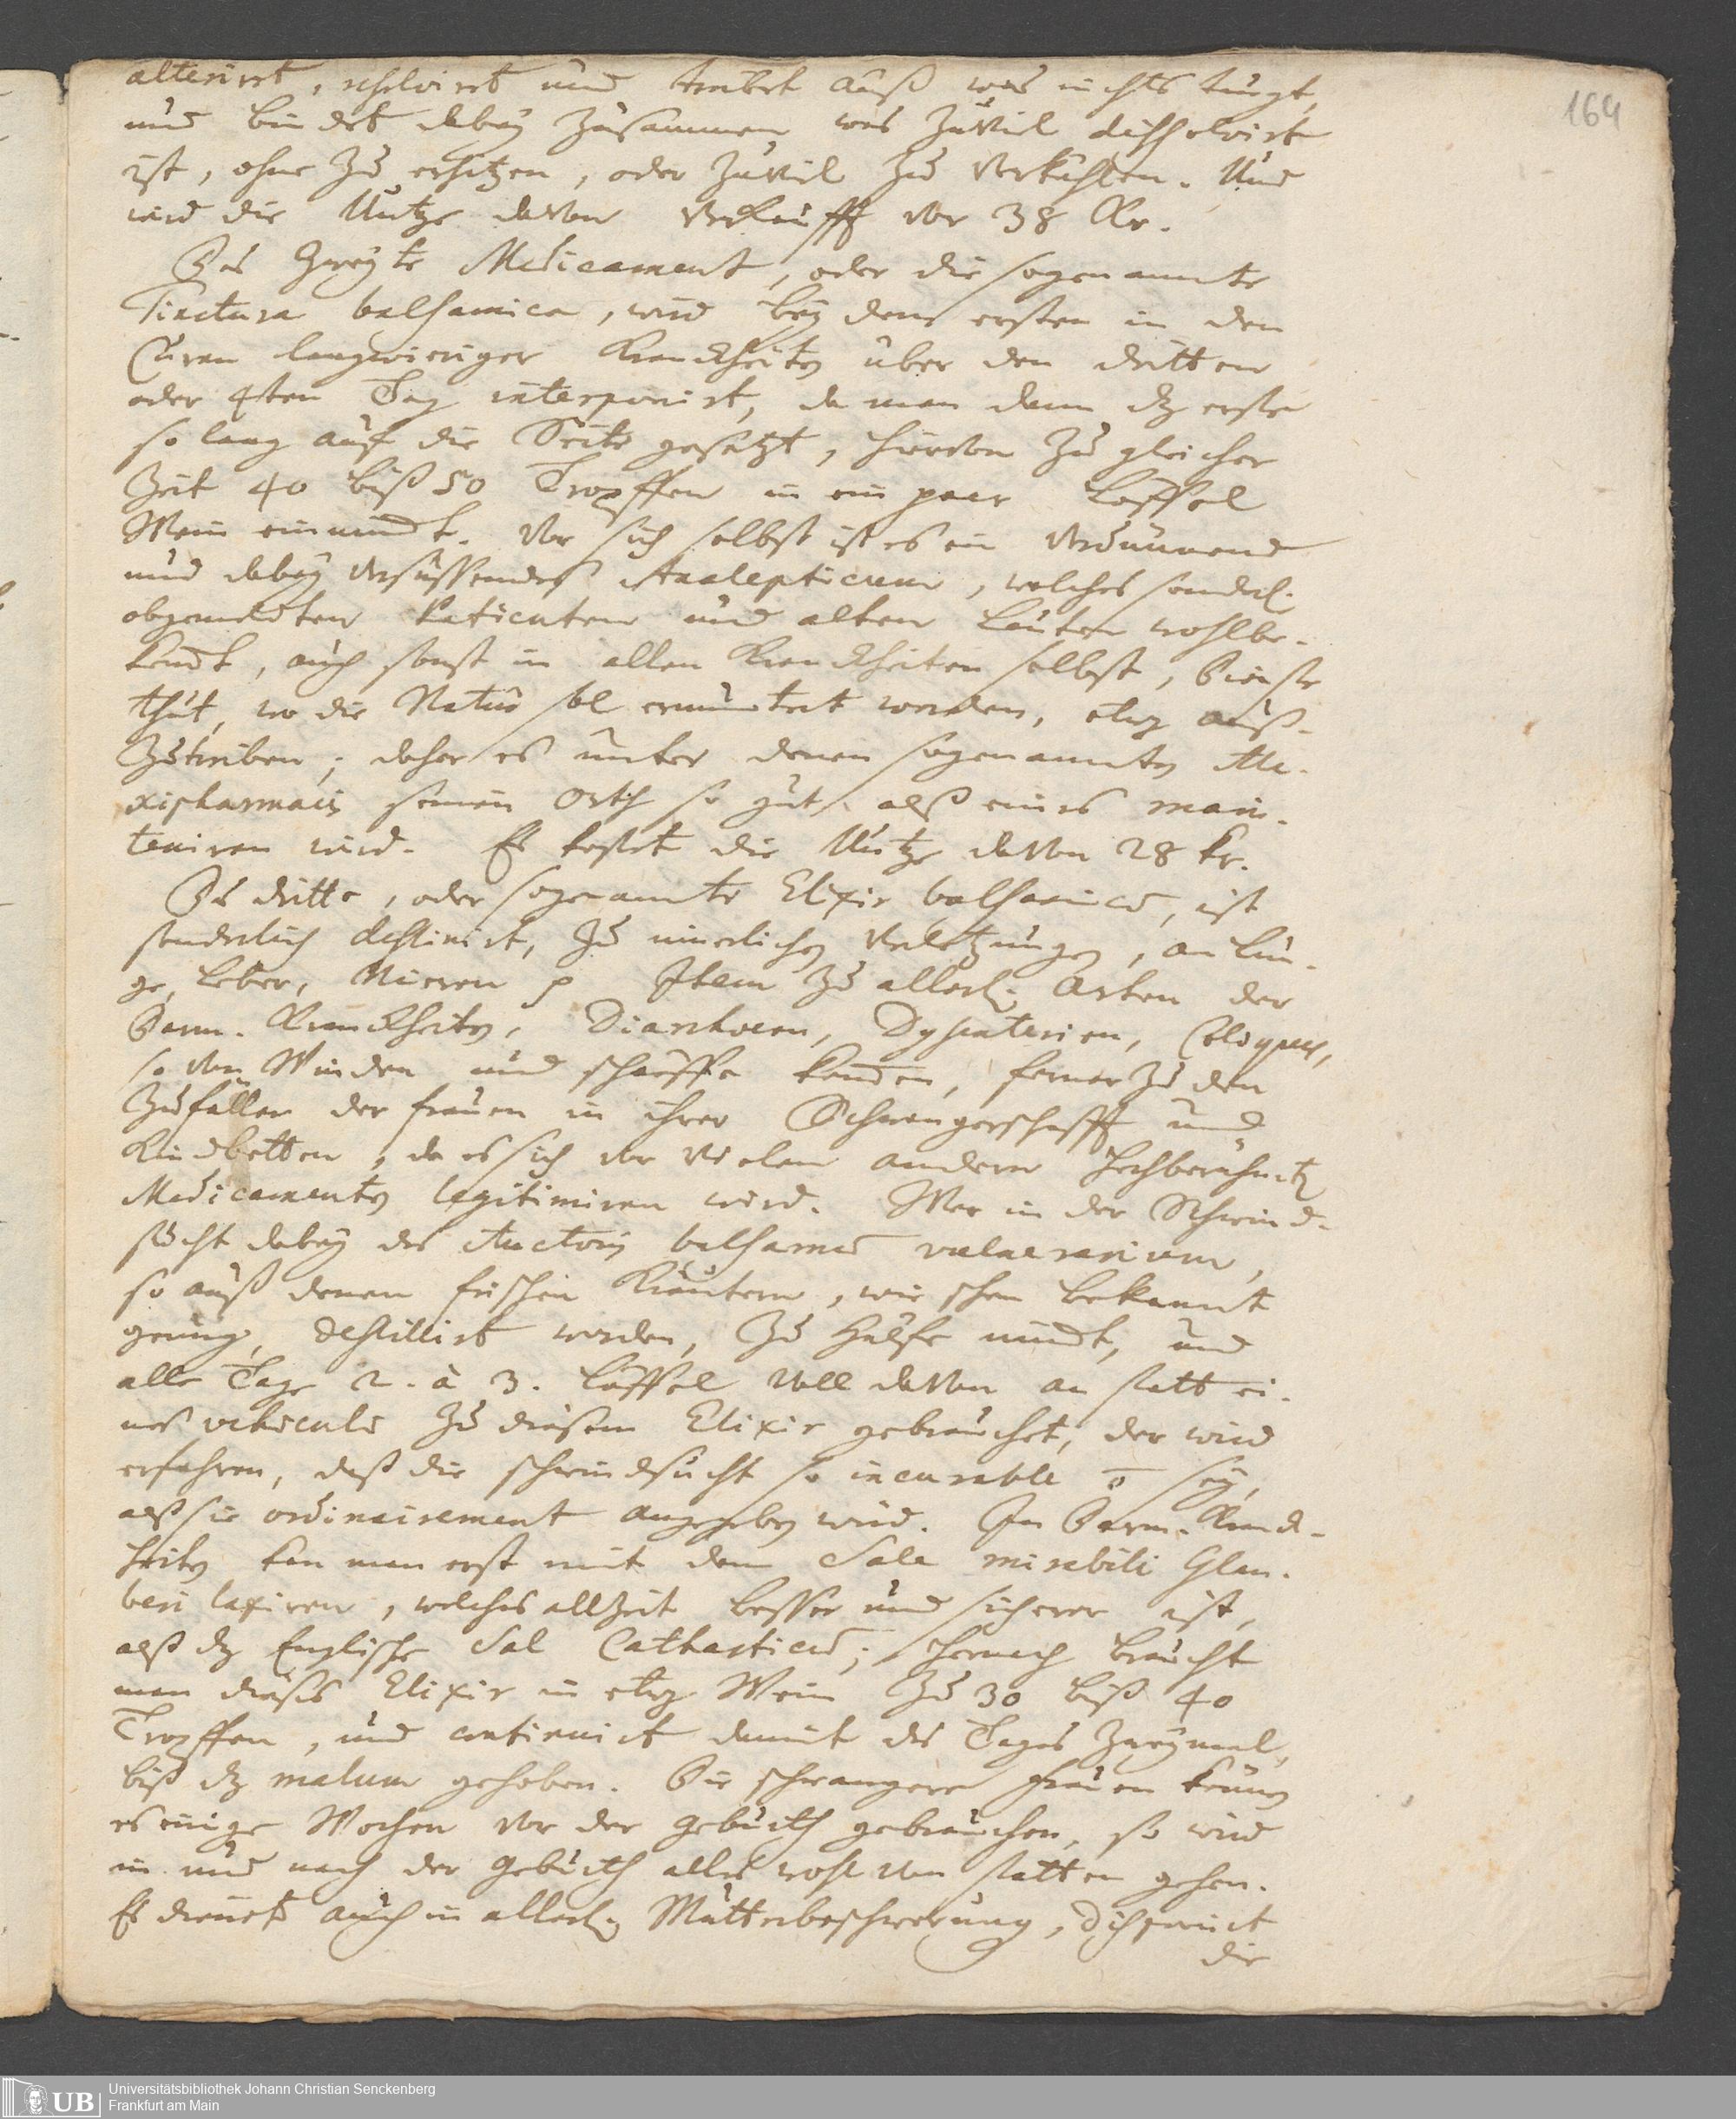 164
alterirt, resolvirt und treibet auß was nichts taugt,
und bindet dabeÿ zusammen, was zuviel dissolvirt
ist, ohne zu erhitzen, oder zuviel zu verkühlen. Und
wird die Untze davon verkaufft vor 38 Kr.
Das Zweÿte Medicament, oder die sogenannte
Tinctura balsamica, wird beÿ dem ersten in den
Curen langwieriger Kranckheiten über den dritten
oder 4ten Tag interponirt, da man dann dz erste
so lang auf die Seite gesetzt, hiervon zu gleicher
Zeit 40 biß 50 Tropffen in ein paar Löffel
Wein einnimt. Vor sich selbst ist es ein verdünnend
und dabeÿ versüssendes Analepticum, welches sonderl.
abgematteten Patienten und alten Leuten wohlbe-
komt, auch sonst in allen Kranckheiten selbst, Dienste
thut, wo die Natur sol ermuntert werden, etwz auß-
zutreiben; daher es unter denen sogenannten Ale-
xipharmacis seinen Orth so gut, alß eines main-
teniren wird. Es kostet die Untze davon 28 kr.
Das dritte, oder sogenannte Elixir balsamicū, ist
sonderlich destinirt, zu innerlichen Verletzungen, an Lun-
ge, Leber, Nieren p Item zu allerl. Arten der
Darm-Kranckheiten, Diarrhoeen, Dysenterien, Coliquen,
so von Winden und schärffe kommen, ferner zu den
Zufällen der frauen in ihrer Schwangerschafft und
Kindbetten, da es sich vor vielen andern Hochberühmten
Medicamenten legitimiren wird. Wer in der Schwind-
sucht dabeÿ des Auctoris balsamū vulnerarium,
so auß denen frischen Kräutern, wie schon bekannt
genug, destillirt worden, zu Hülfe nimt, und
alle Tage 2. à 3. Löffel voll davon an statt ei-
nes vehiculi zu diesem Elixir gebrauchet, der wird
erfahren, daß die schwindsucht so incurable ō seÿ,
alß sie ordinairement angegeben wird. In Darm-Kranck-
heiten kan man erst mit dem Sale mirabili Glau-
beri laxiren, welches allzeit besser und sicherer ist,
alß dz Englische Sal Catharticū; hernach braucht
man dieses Elixir in etwz Wein zu 30 biß 40
Tropffen, und continuirt damit des Tages zweÿmal,
biß dz malum gehoben. Die schwangere frauen können
es einige Wochen vor der Geburth gebrauchen, so wird
in und nach der Geburth alles wohl von statten gehen.
Es dienet auch in allerl. Mutterbeschwerung, dissipirt
die
UB Universitätsbibliothek Johann Christian Senckenberg
Frankfurt am Main